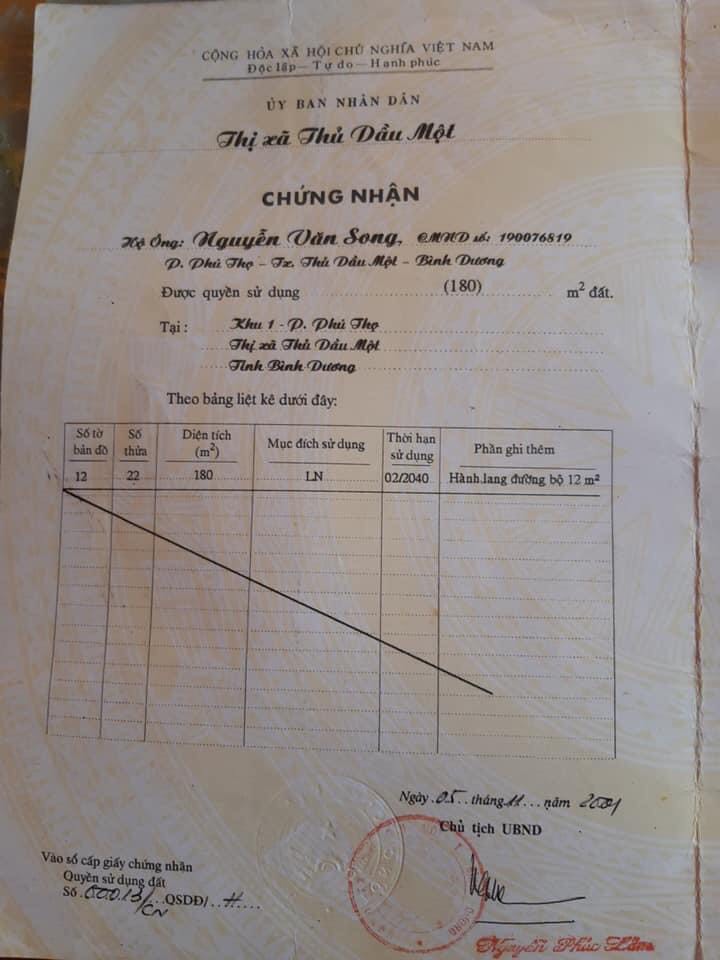 CỘNG HÒA XÃ HỘI CHỦ NGHĨA VIỆT NAM
Độc lập — Tự do — Hạnh phúc
ỦY BAN NHÂN DÂN
Thị xã Thủ Dầu Một
CHỨNG NHẬN
Hộ Ông: Nguyễn Văn Song, CMND số: 190076819
P. Phú Thọ – Tx. Thủ Dầu Một – Bình Dương
Được quyền sử dụng (180) m² đất.
Tại : Khu 1 - P. Phú Thọ
Thị xã Thủ Dầu Một
Tỉnh Bình Dương
Theo bảng liệt kê dưới đây:
Số tờ bản đồ Số thửa Diện tích (m²) Mục đích sử dụng Thời hạn sử dụng Phần ghi thêm
12 22 180 LN 02/2040 Hành lang đường bộ 12 m²
Ngày 05 tháng 11 năm 2001
Chủ tịch UBND
Vào sổ cấp giấy chứng nhận
Quyền sử dụng đất
Số 00013/CN QSDĐ/ H
Nguyễn Phúc